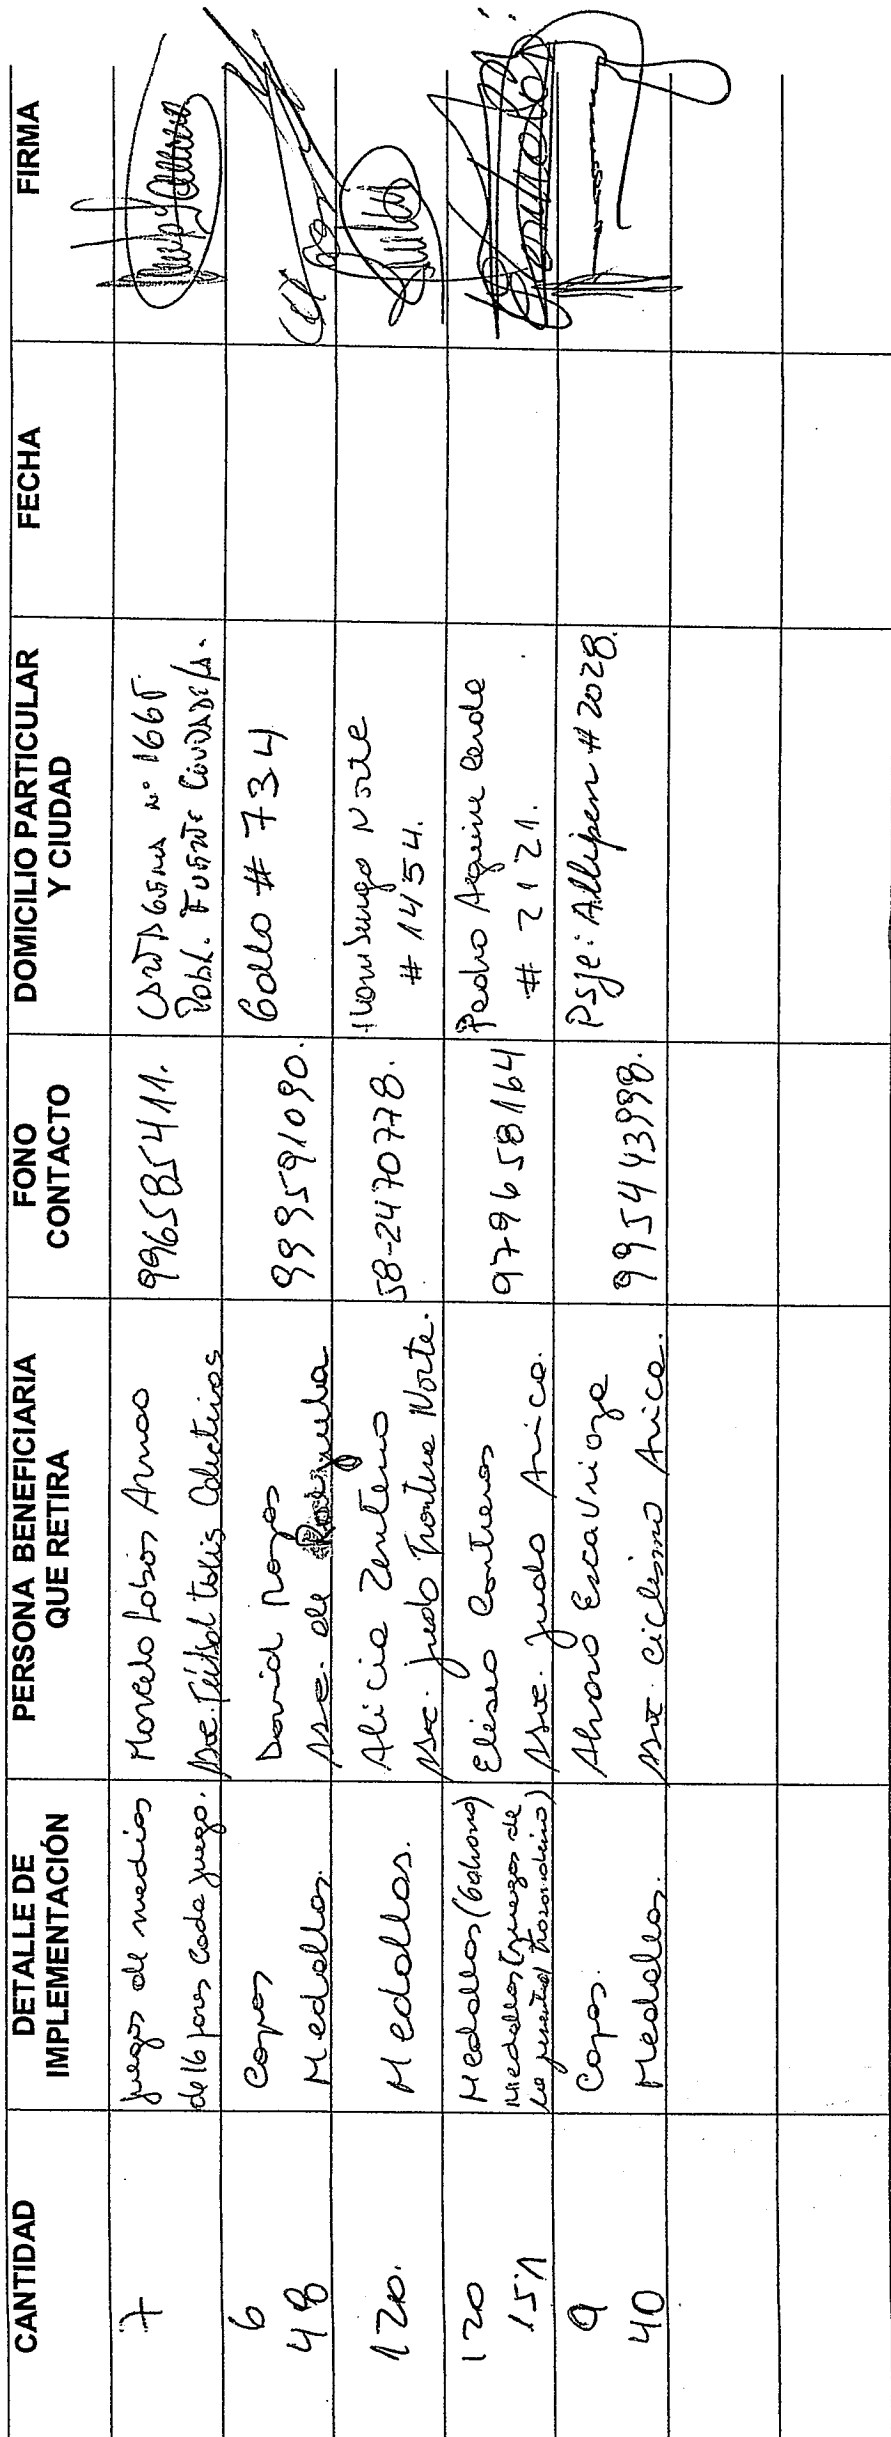 CANTIDAD
DETALLE DE
IMPLEMENTACIÓN
PERSONA BENEFICIARIA
QUE RETIRA
FONO
CONTACTO
DOMICILIO PARTICULAR
Y CIUDAD
FECHA
FIRMA
7
juegos de medias
de 16 pares cada juego.
Marcelo Lobos
Asoc. Fútbol
996585411.
n° 1665
Pobl.
6
48
Copas
Medallas.
David Rojas
Asoc. de
999591090.
Gallo # 734
120.
Medallas.
Alicia Zenteno
Asoc. Judo Frontera Norte.
58-2470778.
Norte
# 1454.
120
151
Medallas
Medallas (juegos de
Eliseo Contreras
Asoc. Judo Arica.
979658164
Pedro Aguirre Cerda
# 2121.
9
40
Copas.
Medallas.
Alvaro
Asoc. Ciclismo Arica.
995443998.
Psje: Allipen # 2028.